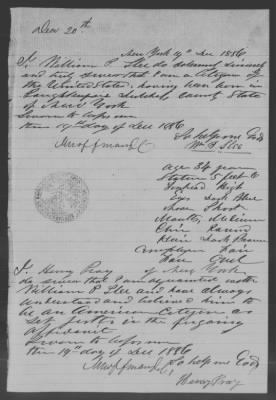 Dec 20th
New York 19th Dec 1886
I, William P. Slee do solemnly sincerely
and truly swear that I am a Citizen of
the United States, having been born in
County State
of New York
Sworn to before me
this 19th day of Dec 1886
So help me God
Wm P. Slee
age 34 years
Stature 5 feet 6
Forehead High
Eyes Dark Blue
Nose Short
Mouth, Medium
Chin Round
Hair Dark Brown
Complexion Fair
Face Oval
I, Henry Pray of New York
do swear that I am acquainted with
William P. Slee and have always
understood and believed him to
be an American Citizen as
set forth in the foregoing
affidavit
Sworn to before me
this 19th day of Dec 1886
So help me God
Henry Pray